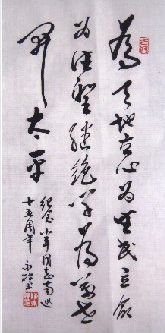 為天地立心為生民立命
為往聖繼絕學為萬世
開太平
紀念小平同志南巡
十五周年